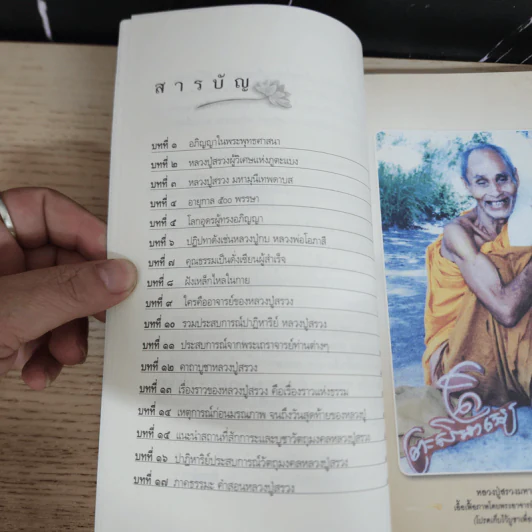 สารบัญ
บทที่ ๑ อภิญญาในพระพุทธศาสนา
บทที่ ๒ หลวงปู่สรวงผู้วิเศษแห่งภูตะแบง
บทที่ ๓ หลวงปู่สรวง มหามุนีเทพดาบส
บทที่ ๔ อายุกาล ๕๐๐ พรรษา
บทที่ ๕ โลกอุดรผู้ทรงอภิญญา
บทที่ ๖ ปฏิปทาดั่งเช่นหลวงปู่ทบ หลวงพ่อโอภาสี
บทที่ ๗ คุณธรรมเป็นดั่งเซียนผู้สำเร็จ
บทที่ ๘ ฝังเหล็กไหลในกาย
บทที่ ๙ ใครคืออาจารย์ของหลวงปู่สรวง
บทที่ ๑๐ รวมประสบการณ์ปาฏิหาริย์ หลวงปู่สรวง
บทที่ ๑๑ ประสบการณ์จากพระเถราจารย์ท่านต่างๆ
บทที่ ๑๒ คาถาบูชาหลวงปู่สรวง
บทที่ ๑๓ เรื่องราวของหลวงปู่สรวง คือเรื่องราวแห่งธรรม
บทที่ ๑๔ เหตุการณ์ก่อนมรณภาพ จนถึงวันสุดท้ายของหลวงปู่
บทที่ ๑๕ แนะนำสถานที่สักการะและบูชาวัตถุมงคลหลวงปู่สรวง
บทที่ ๑๖ ปาฏิหาริย์ประสบการณ์วัตถุมงคลหลวงปู่สรวง
บทที่ ๑๗ ภาคธรรมะ คำสอนหลวงปู่สรวง
หลวงปู่สรวงมหา